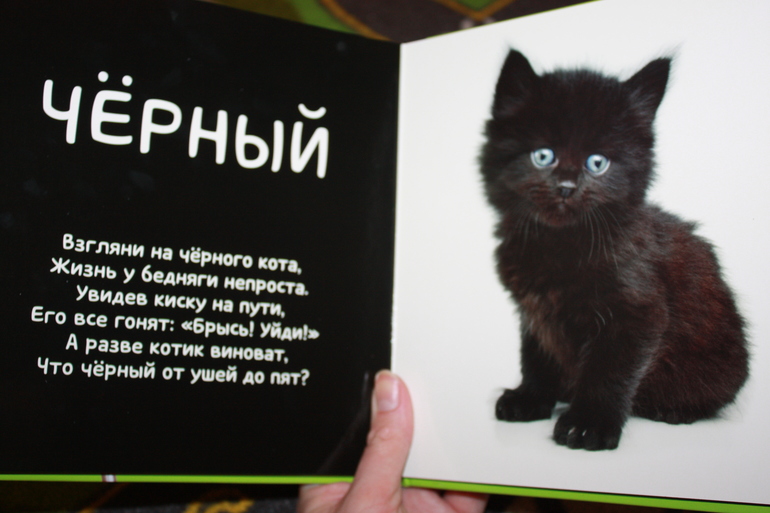 ЧЁРНЫЙ
Взгляни на чёрного кота,
Жизнь у бедняги непроста.
Увидев киску на пути,
Его все гонят: «Брысь! Уйди!»
А разве котик виноват,
Что чёрный от ушей до пят?